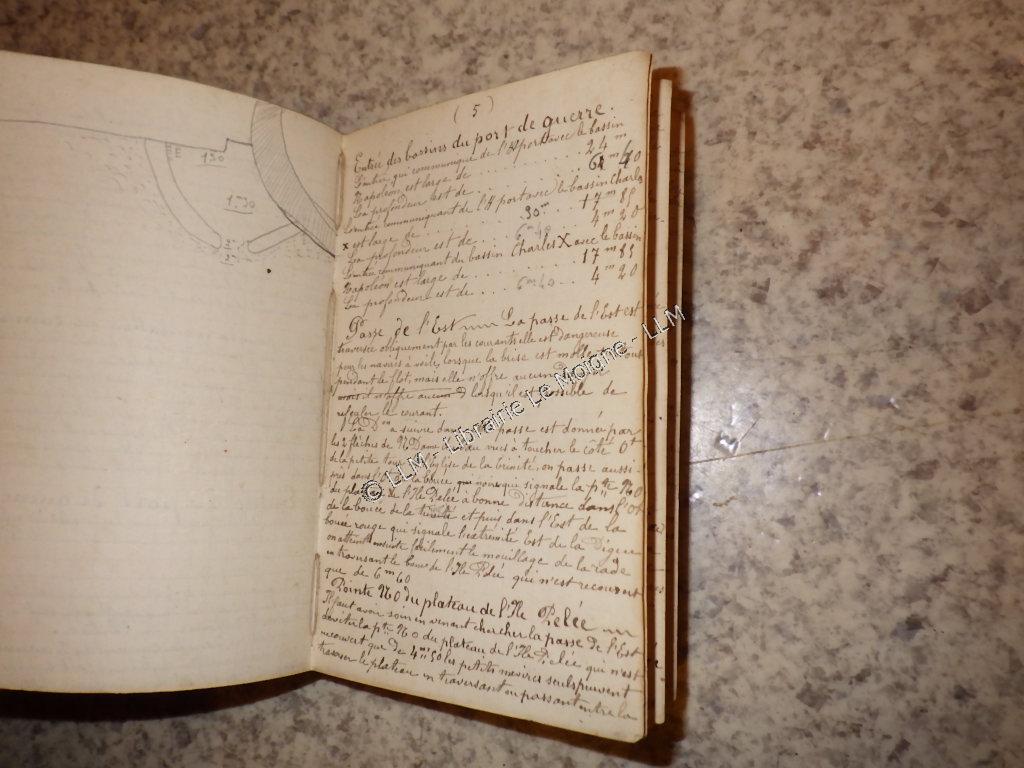 BE
130
1.70
( 5 )
Entrée des bassins du port de guerre.
L'entrée qui communique de l'A. port avec le bassin
Napoléon est large de ........ 24 m
La profondeur est de ........ 6 m 40
L'entrée communiquant de l'A. port avec le bassin Charles
X est large de ... 30 m ... 17 m 85
La profondeur est de ... 6 m 40 ... 4 m 20
L'entrée communiquant du bassin Charles X avec le bassin
Napoléon est large de ........ 17 m 85
La profondeur est de .... 6 m 40 .. 4 m 20
Passe de l'Est La passe de l'Est est
traversée obliquement par les courants elle est dangereuse
pour les navires à voile, lorsque la brise est molle
pendant le flot, mais elle n'offre aucun
lorsqu'il est possible de
refouler le courant.
La D on à suivre dans passe est donnée par
les 2 flèches de N. Dame vues à toucher le côté Ot
de la petite tour de l'église de la trinité, on passe aussi
près dans la bouée qui signale la pte NO
du plateau de l'Ile Pelée à bonne distance dans l'Ot
de la bouée de la trinité et puis dans l'Est de la
bouée rouge qui signale l'extrémité Est de la Digue
on atteint ensuite facilement le mouillage de la rade
en traversant le banc de l'Ile Pelée qui n'est recouvert
que de 6 m 60
Pointe NO du plateau de l'Ile Pelée
Il faut avoir soin en venant chercher la passe de l'Est
d'éviter la pte NO du plateau de l'Ile Pelée qui n'est
recouvert que de 4 m 50 les petits navires seuls peuvent
traverser le plateau en traversant en passant entre la
© LLM - Librairie Le Moigne - LLM